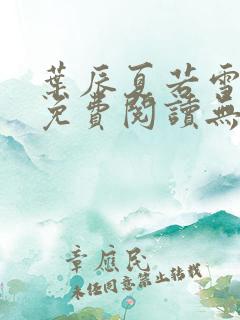 葉辰夏若雪
免費閱讀無
章應民
未經同意禁止轉載